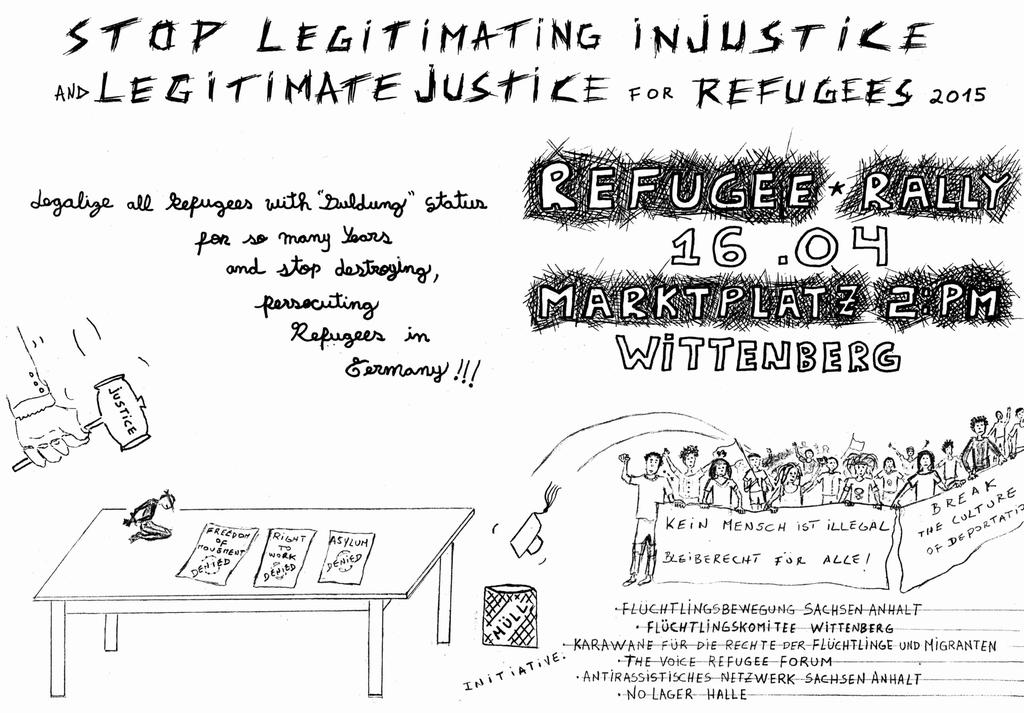 STOP LEGITIMATING INJUSTICE
AND LEGITIMATE JUSTICE FOR REFUGEES 2015
Legalize all Refugees with "Duldung" Status
for so many Years
and stop destroying,
persecuting
Refugees in
Germany!!!
REFUGEE * RALLY
16.04
MARKTPLATZ 2:PM
WITTENBERG
JUSTICE
FREEDOM
OF
MOVEMENT
DENIED
RIGHT
TO
WORK
DENIED
ASYLUM
DENIED
MÜLL
KEIN MENSCH IST ILLEGAL
BLEIBERECHT FÜR ALLE!
BREAK
THE CULTURE
OF DEPORTATIO
INITIATIVE:
·FLÜCHTLINGSBEWEGUNG SACHSEN ANHALT
·FLÜCHTLINGSKOMITEE WITTENBERG
·KARAWANE FÜR DIE RECHTE DER FLÜCHTLINGE UND MIGRANTEN
·THE VOICE REFUGEE FORUM
·ANTIRASSISTISCHES NETZWERK SACHSEN ANHALT
·NO LAGER HALLE